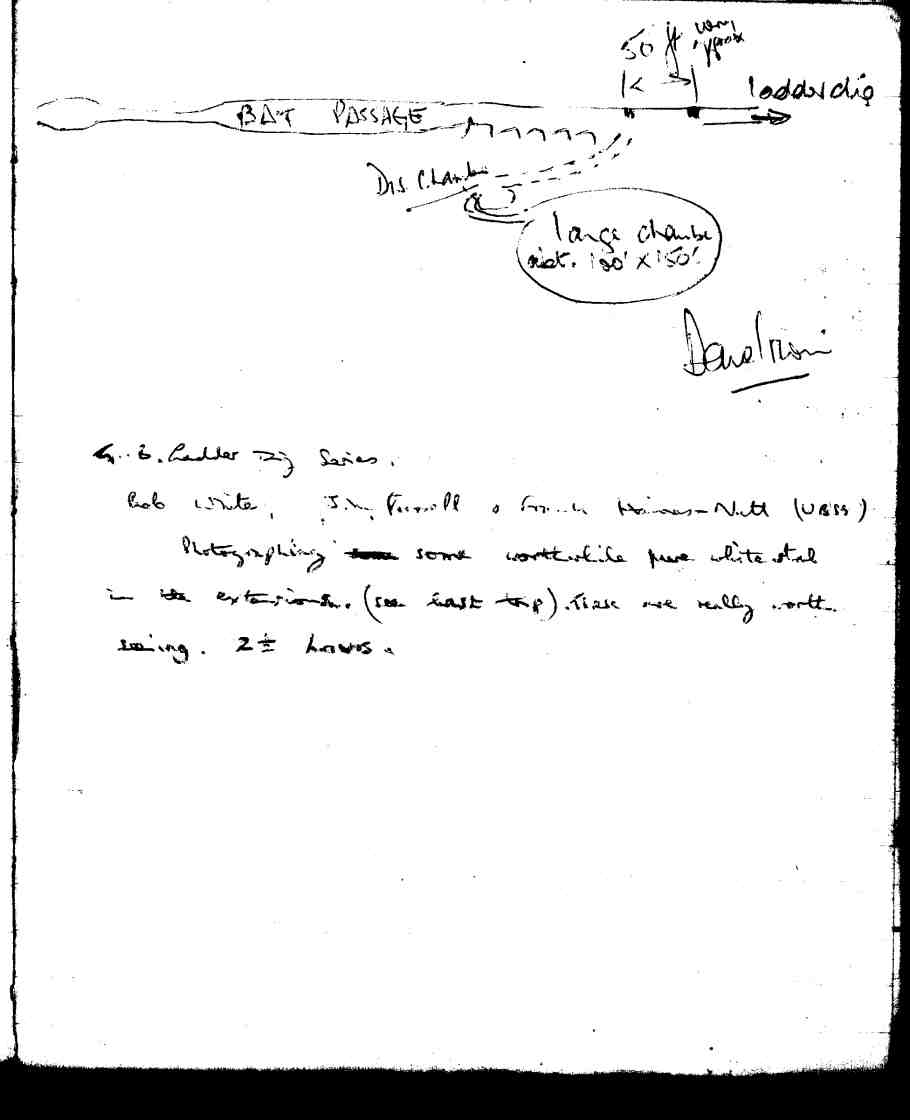 50 ft very approx
ladder dig
BAT PASSAGE
Dis. Chamber
large chambe
100' X 150'
G.B. Ladder Dig Series.
Rob White, Jim Farnell & Frank Haines-Nutt (UBSS)
Photographing some worthwhile pure white stal
in the extensions. (see last trip). These are really worth
seeing. 2½ hours.